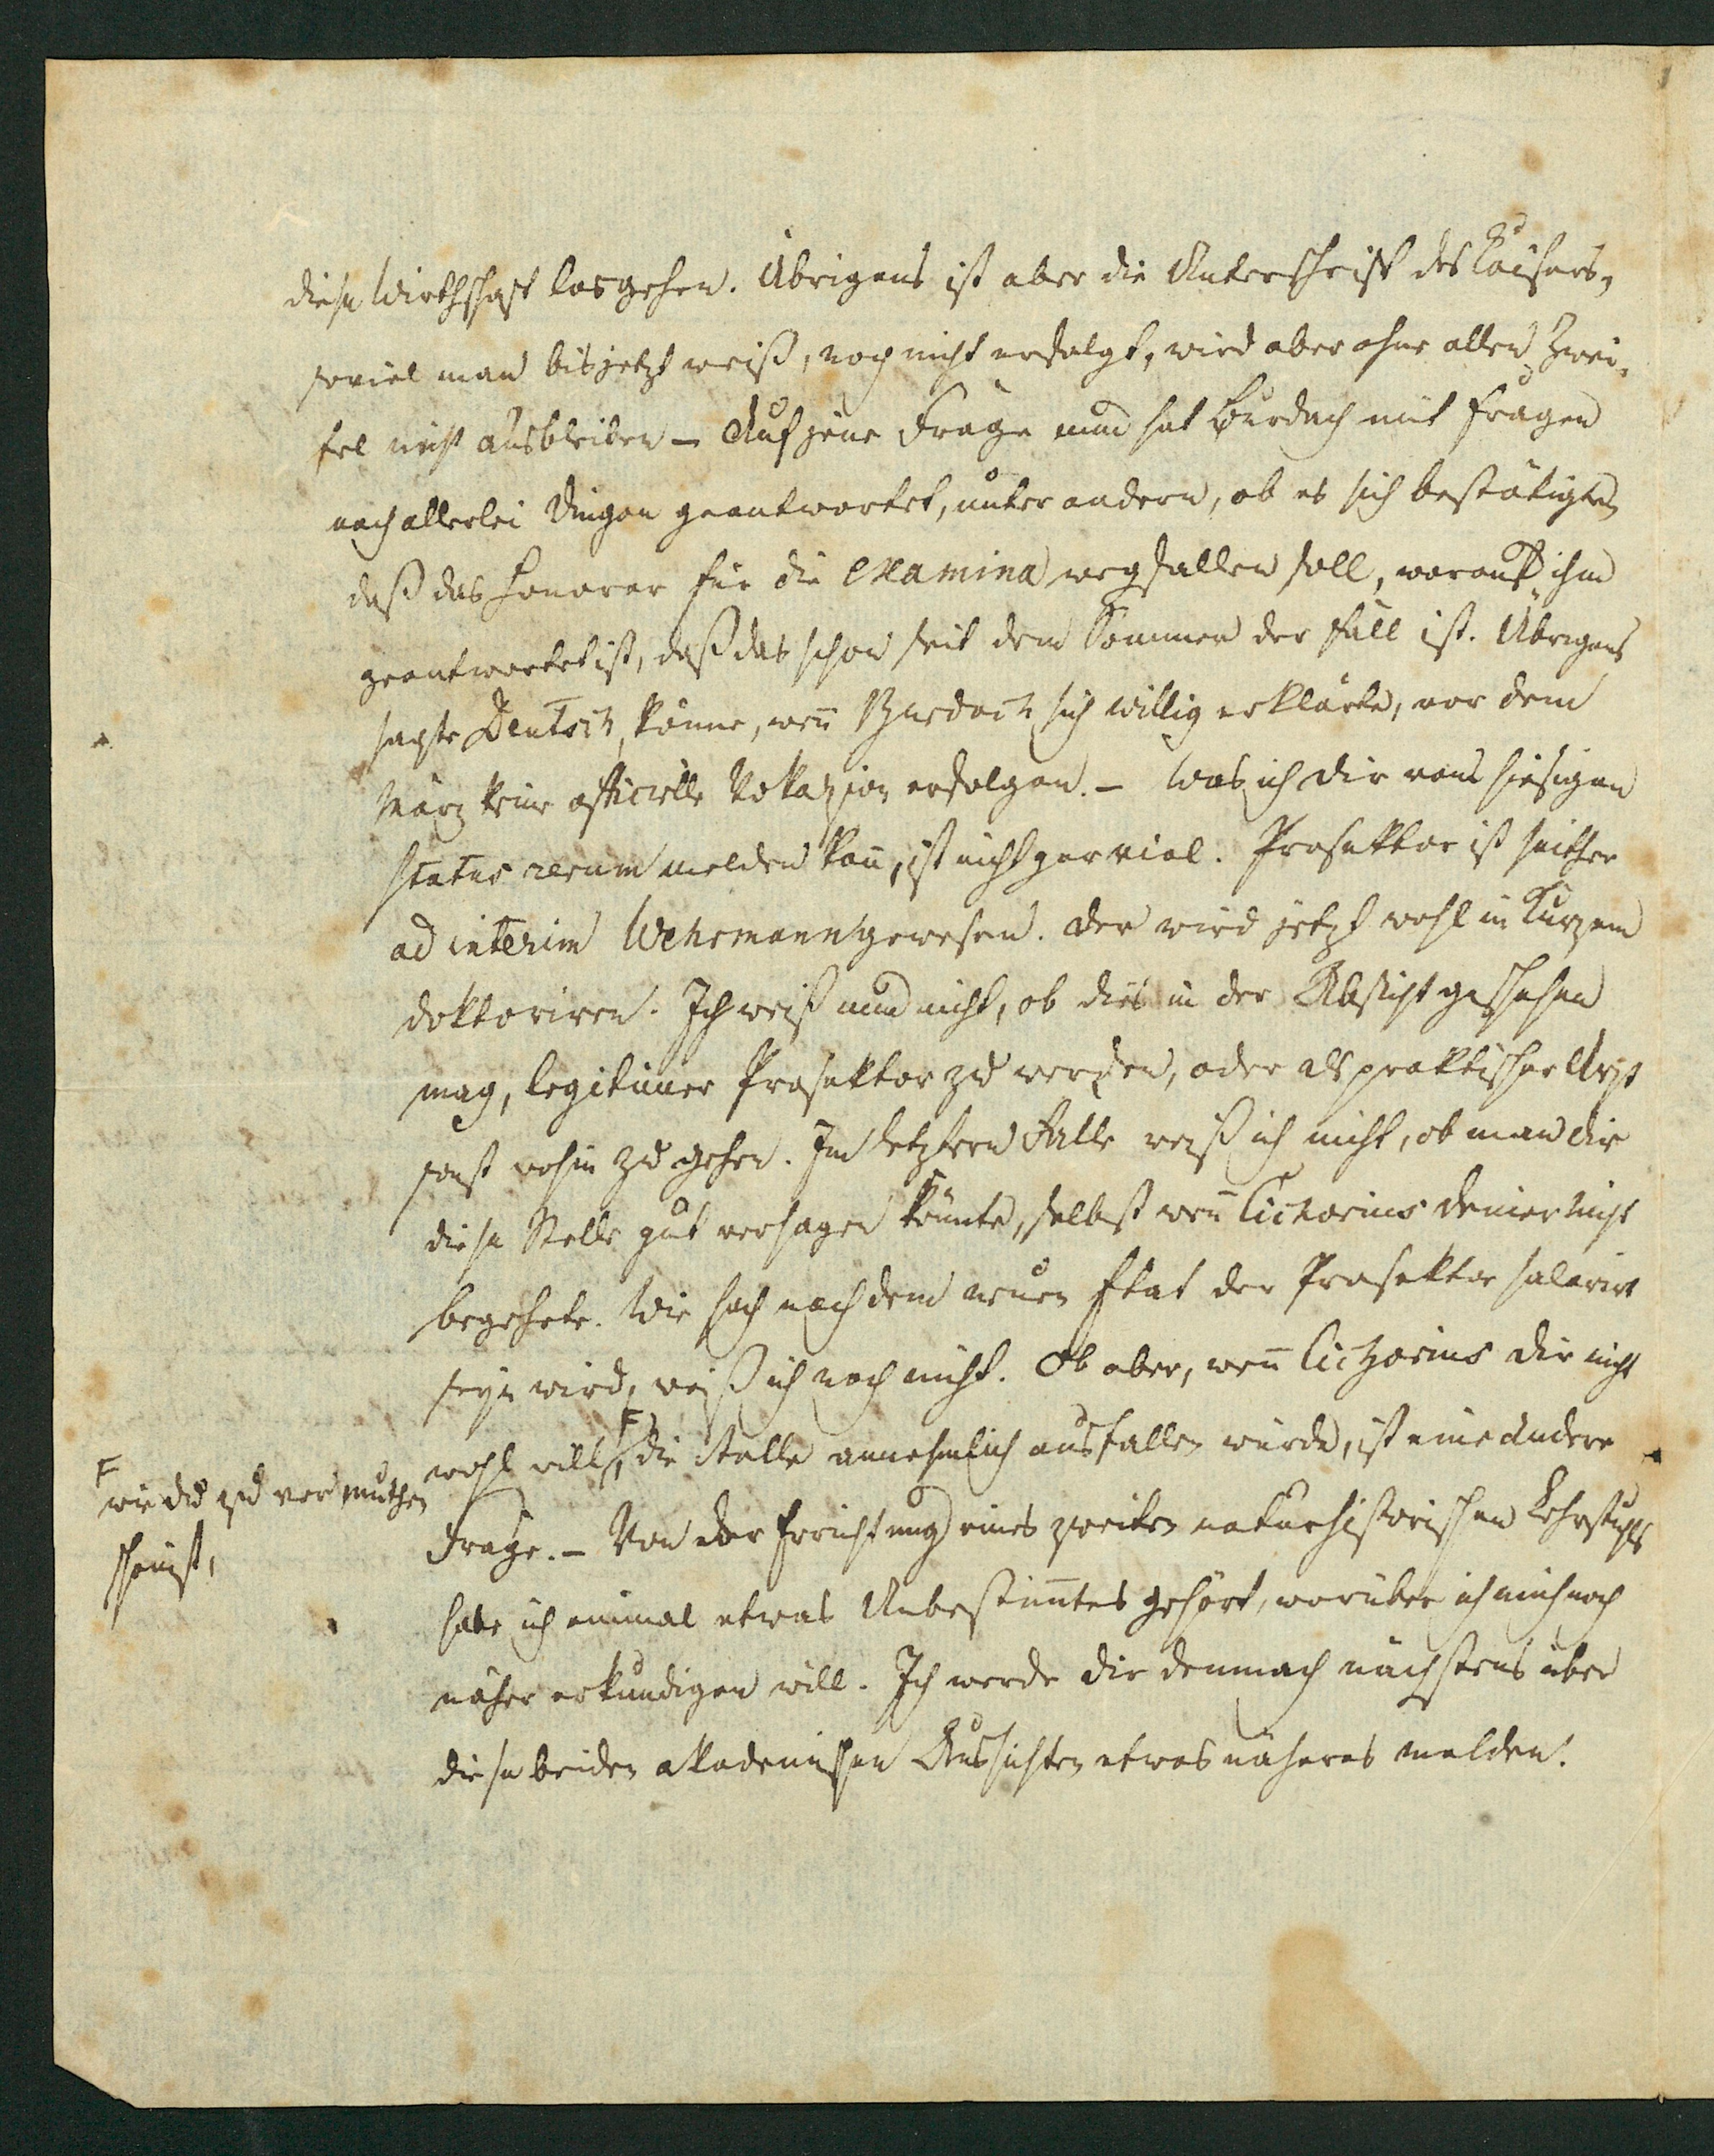 diese Wirthschaft losgehen. Übrigens ist aber die Unterschrift des Kaisers,
soviel man bis jetzt weiß, noch nicht erfolgt, wird aber ohne allen Zwei-
fel nicht ausbleiben – Auf jene Frage nun hat Burdach mit Fragen
nach allerlei Dingen geantwortet, unter andern, ob es sich bestätigte
daß das Honorar für die examina wegfallen soll, worauf ihm
geantwortet ist, daß das schon seit dem Sommer der Fall ist. Übrigens
sagte Deutsch, könne, wenn Burdach sich willig erklärte, vor dem
März keine officielle Vokazion erfolgen. – Was ich dir vom hiesigen
status rerum melden kann, ist nicht gar viel. Prosektor ist seither
ad interim Wehrmann gewesen. Der wird jetzt wohl in Kurzem
doktoriren. Ich weiß nun nicht, ob dies in der Absicht geschehen
mag, legitimer Prosektor zu werden, oder als praktischer Arzt
sonst wohin zu gehen. Im letztern Falle weiß ich nicht, ob man dir
diese Stelle gut versagen könnte, selbst wenn Cichorius deiner nicht
begehrte. Wie hoch nach dem neuen Etat der Prosektor salarirt
seyn wird, weiß ich noch nicht. Ob aber, wenn Cichorius dir nicht
wohl will, F die Stelle annehmlich ausfallen würde, ist eine andere
F
wie du zu vermuthen
scheinst,
Frage. – Von der Errichtung eines zweiten naturhistorischen Lehrstuhls
habe ich einmal etwas Unbestimmtes gehört, worüber ich mich noch
näher erkundigen will. Ich werde dir demnach nächstens über
diese beiden akademischen Aussichten etwas näheres melden.